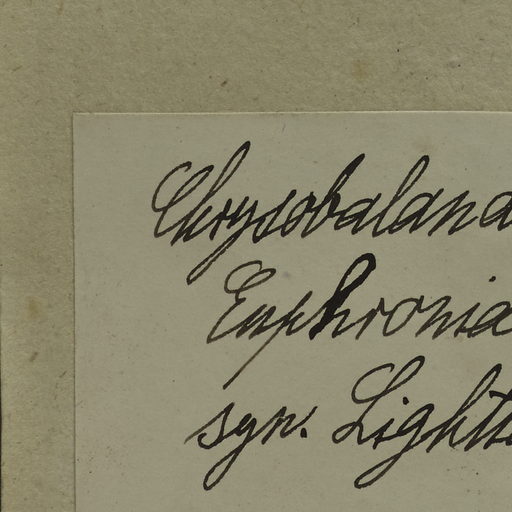 Chrysobalana
Euphronia
syn. Lighti